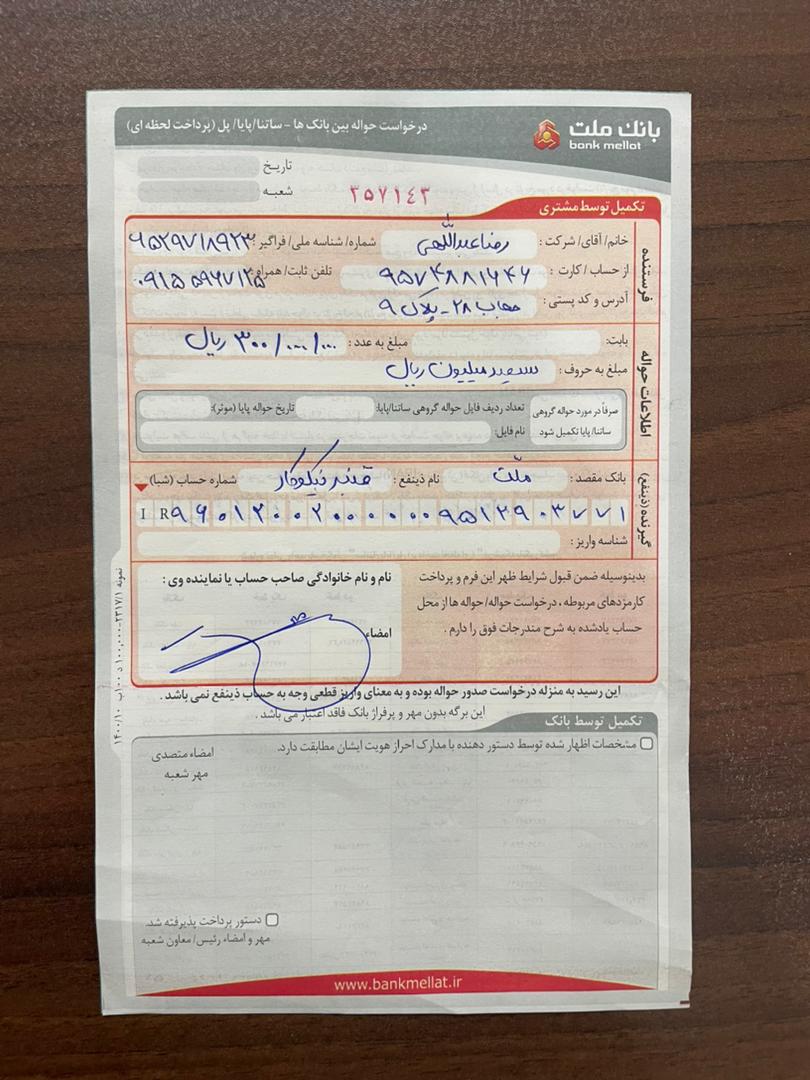 بانک ملت
bank mellat
درخواست حواله بین بانک ها - ساتنا/پایا/ پل (پرداخت لحظه ای)
تاریخ
شعبه
۳۵۷۱۴۳
تکمیل توسط مشتری
فرستنده
خانم/ آقای/ شرکت : رضا عبداللهی شماره/ شناسه ملی/ فراگیر :
از حساب / کارت : ۹۵۷۴۸۸۱۶۴۶ تلفن ثابت/ همراه : ۰۹۱۵۵۹۶۷۱۲۵
آدرس و کد پستی : ۲۸ - پلاک ۹
اطلاعات حواله
بابت: مبلغ به عدد : ۳۰۰/۰۰۰/۰۰۰ ریال
مبلغ به حروف : سیصد میلیون ریال
صرفاً در مورد حواله گروهی ساتنا/پایا تکمیل شود
تعداد ردیف فایل حواله گروهی ساتنا/پایا: تاریخ حواله پایا (موثر):
نام فایل:
گیرنده (ذینفع)
بانک مقصد : ملّت نام ذینفع : قنبر نیکوکار شماره حساب (شبا)
IR ۹۶۰۱۲۰۰۲۰۰۰۰۰۰۹۵۱۲۹۰۳۷۷۱
شناسه واریز :
بدینوسیله ضمن قبول شرایط ظهر این فرم و پرداخت
کارمزدهای مربوطه ، درخواست حواله/ حواله ها از محل
حساب یادشده به شرح مندرجات فوق را دارم .
نام و نام خانوادگی صاحب حساب یا نماینده وی :
امضاء
این رسید به منزله درخواست صدور حواله بوده و به معنای واریز قطعی وجه به حساب ذینفع نمی باشد .
این برگه بدون مهر و پرفراژ بانک فاقد اعتبار می باشد .
تکمیل توسط بانک
مشخصات اظهار شده توسط دستور دهنده با مدارک احراز هویت ایشان مطابقت دارد.
امضاء متصدی
مهر شعبه
دستور پرداخت پذیرفته شد.
مهر و امضاء رئیس/ معاون شعبه
www.bankmellat.ir